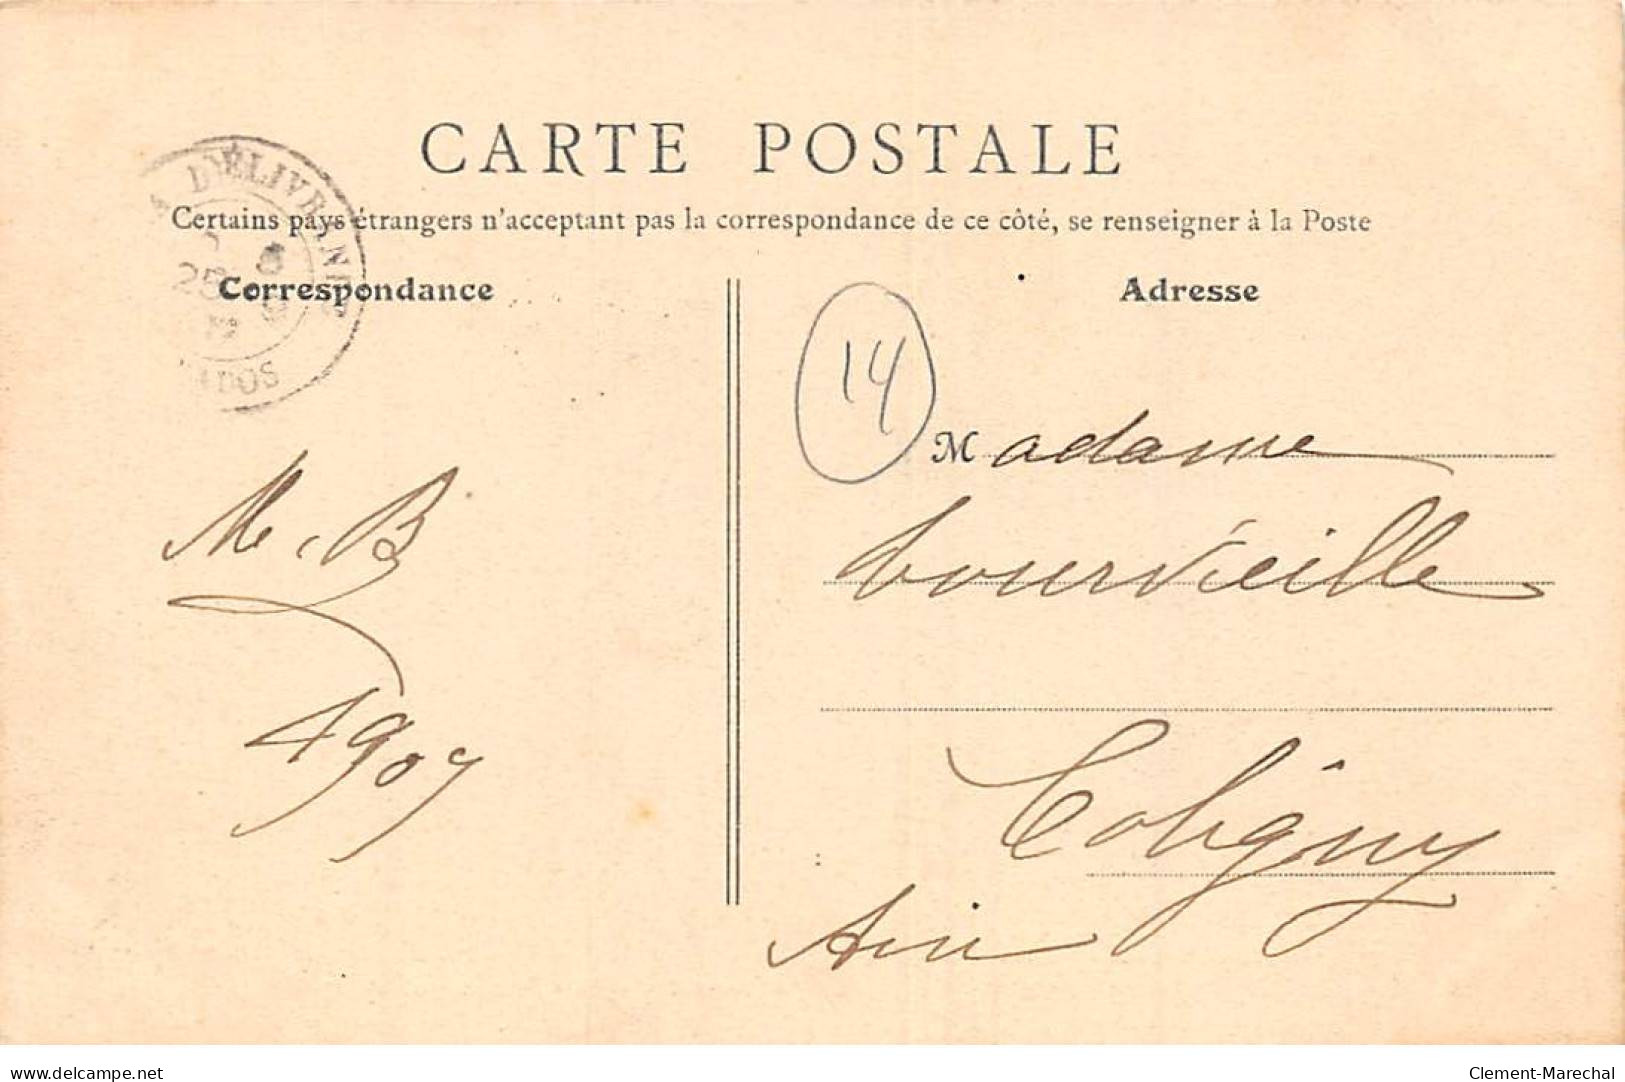 CARTE POSTALE
Certains pays étrangers n'acceptent pas la correspondance de ce côté, se renseigner à la Poste
DÉLIVRANDE
25
Correspondance
Adresse
14
Madame
Tourvieille
M. B
1907
Coligny
Ain
delcampe.net
Clement-Marechal